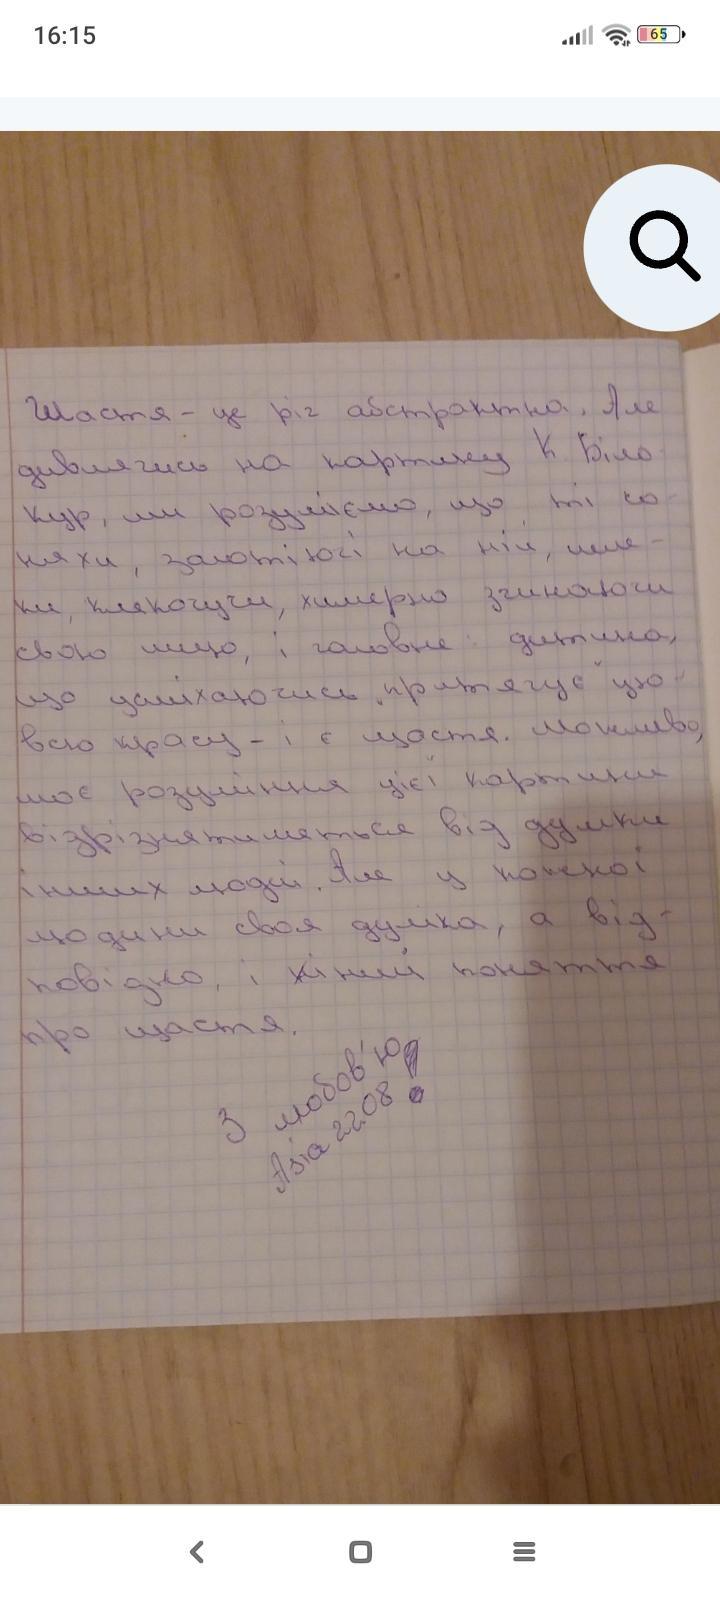 16:15
65
Щастя - це річ абстрактна. Але
дивлячись на картину К Біло-
кур, ми розуміємо, що ті со-
няхи, золотіючі на ній, леле-
ки, клекочучи, химерно згинаючи
свою шию, і головне: дитина,
що усміхаючись "притягує" цю
всю красу - і є щастя. Можливо,
моє розуміння цієї картини
відрізнятиметься від думки
інших людей. Але у кожної
людини своя думка, а від-
повідно, і інший поняття
про щастя.
З любов'ю
Азіа 2208